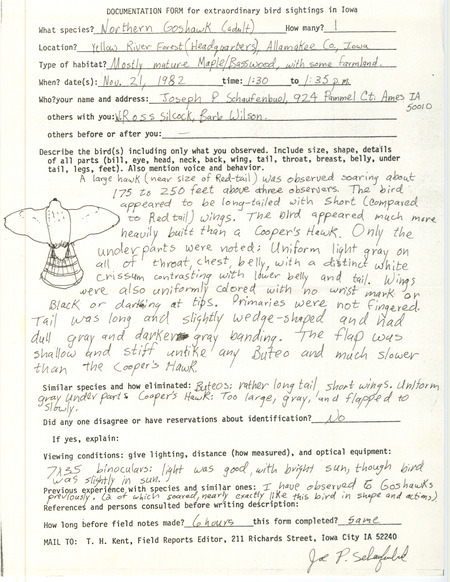 DOCUMENTATION FORM for extraordinary bird sightings in Iowa
What species? Northern Goshawk (adult) How many? 1
Location? Yellow River Forest (Headquarters), Allamakee Co., Iowa
Type of habitat? Mostly mature Maple/Basswood, with some farmland.
When? date(s): Nov. 21, 1982 time: 1:30 to 1:35 p.m.
Who? your name and address: Joseph P Schaufenbuel, 924 Pammel Ct. Ames IA
50010
others with you: Ross Silcock, Barb Wilson.
others before or after you: —
Describe the bird(s) including only what you observed. Include size, shape, details
of all parts (bill, eye, head, neck, back, wing, tail, throat, breast, belly, under
tail, legs, feet). Also mention voice and behavior.
A large hawk (near size of Red-tail) was observed soaring about
175 to 250 feet above three observers. The bird
appeared to be long-tailed with short (compared
to Red tail) wings. The bird appeared much more
heavily built than a Cooper's Hawk. Only the
underparts were noted: Uniform light gray on
all of throat, chest, belly, with a distinct white
crissum contrasting with lower belly and tail. Wings
were also uniformly colored with no wrist mark or
Black or darking at tips. Primaries were not fingered.
Tail was long and slightly wedge-shaped and had
dull gray and darker gray banding. The flap was
shallow and stiff unlike any Buteo and much slower
than the Cooper's Hawk
Similar species and how eliminated: Buteos: rather long tail, short wings. Uniform
gray under parts Cooper's Hawk: Too large, gray, and flapped to
slowly.
Did any one disagree or have reservations about identification? No
If yes, explain:
Viewing conditions: give lighting, distance (how measured), and optical equipment:
7X35 binoculars: light was good, with bright sun, though bird
was slightly in sun.
Previous experience with species and similar ones: I have observed 6 Goshawks
previously. (2 of which soared, nearly exactly like this bird in shape and actions).
References and persons consulted before writing description:
How long before field notes made? 6 hours this form completed? same
MAIL TO: T. H. Kent, Field Reports Editor, 211 Richards Street, Iowa City IA 52240
Joe P.